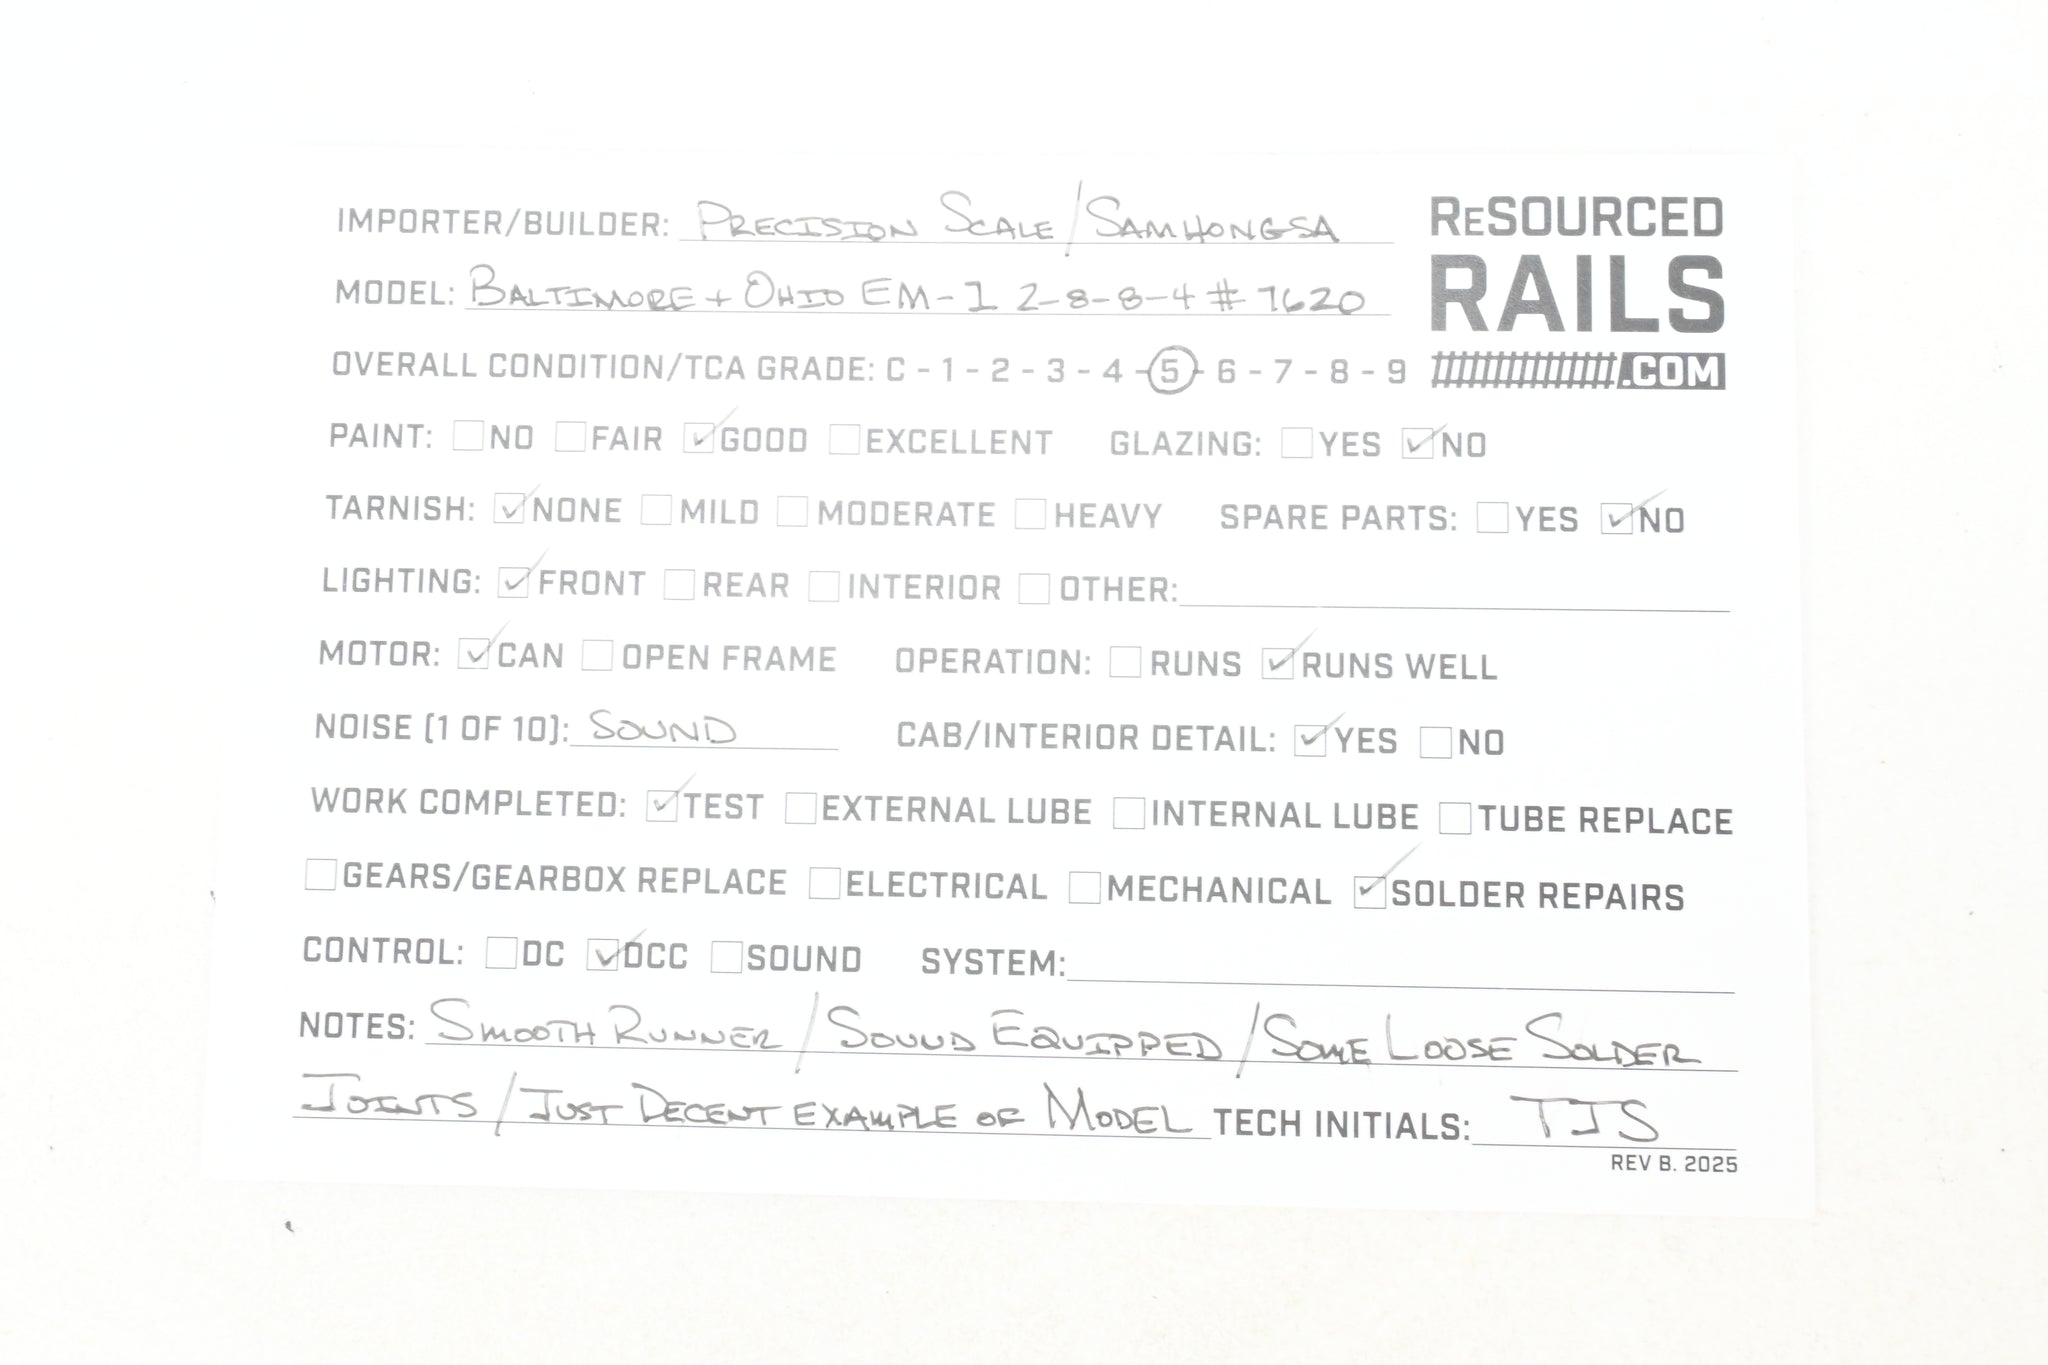 IMPORTER/BUILDER: PRECISION SCALE/SAMHONGSA
RESOURCED
RAILS
.COM
MODEL: BALTIMORE + OHIO EM-1 2-8-8-4 # 7620
OVERALL CONDITION/TCA GRADE: C - 1 - 2 - 3 - 4 - 5 - 6 - 7 - 8 - 9
PAINT: NO FAIR ✓ GOOD EXCELLENT GLAZING: YES ✓ NO
TARNISH: ✓ NONE MILD MODERATE HEAVY SPARE PARTS: YES ✓ NO
LIGHTING: ✓ FRONT REAR INTERIOR OTHER:
MOTOR: ✓ CAN OPEN FRAME OPERATION: RUNS ✓ RUNS WELL
NOISE (1 OF 10): SOUND CAB/INTERIOR DETAIL: ✓ YES NO
WORK COMPLETED: ✓ TEST EXTERNAL LUBE INTERNAL LUBE TUBE REPLACE
GEARS/GEARBOX REPLACE ELECTRICAL MECHANICAL ✓ SOLDER REPAIRS
CONTROL: DC ✓ DCC SOUND SYSTEM:
NOTES: SMOOTH RUNNER / SOUND EQUIPPED / SOME LOOSE SOLDER
JOINTS / JUST DECENT EXAMPLE OF MODEL TECH INITIALS: TJS
REV B. 2025